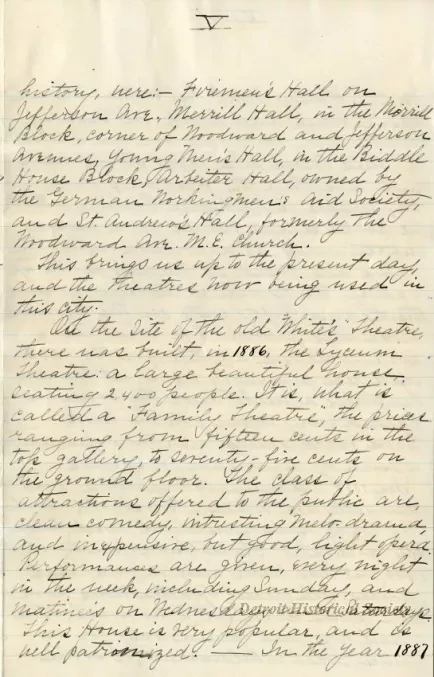 V
history, were:- Firemen's Hall on
Jefferson Ave., Merrill Hall, in the Merrill
Block, corner of Woodward and Jefferson
Avenues, Young Men's Hall, in the Biddle
House Block, Arbeiter Hall, owned by
the German Workingmen's Aid Society,
and St. Andrew's Hall, formerly the
Woodward Ave. M.E. Church.
This brings us up to the present day,
and the theatres now being used in
this city.
On the site of the old "White's" Theatre,
there was built, in 1886, the Lyceum
Theatre: a large beautiful house,
seating 2,400 people. It is, what is
called a "Family Theatre", the prices
ranging from fifteen cents in the
top gallery, to seventy-five cents on
the ground floor. The class of
attractions offered to the public are,
clean comedy, intresting Melo-drama,
and inexpensive, but good, light opera.
Performances are given, every night
in the week, including Sunday, and
matinees on Wednesdays
Detroit Historical Society
This House is very popular, and is
well patronized. — In the year 1887